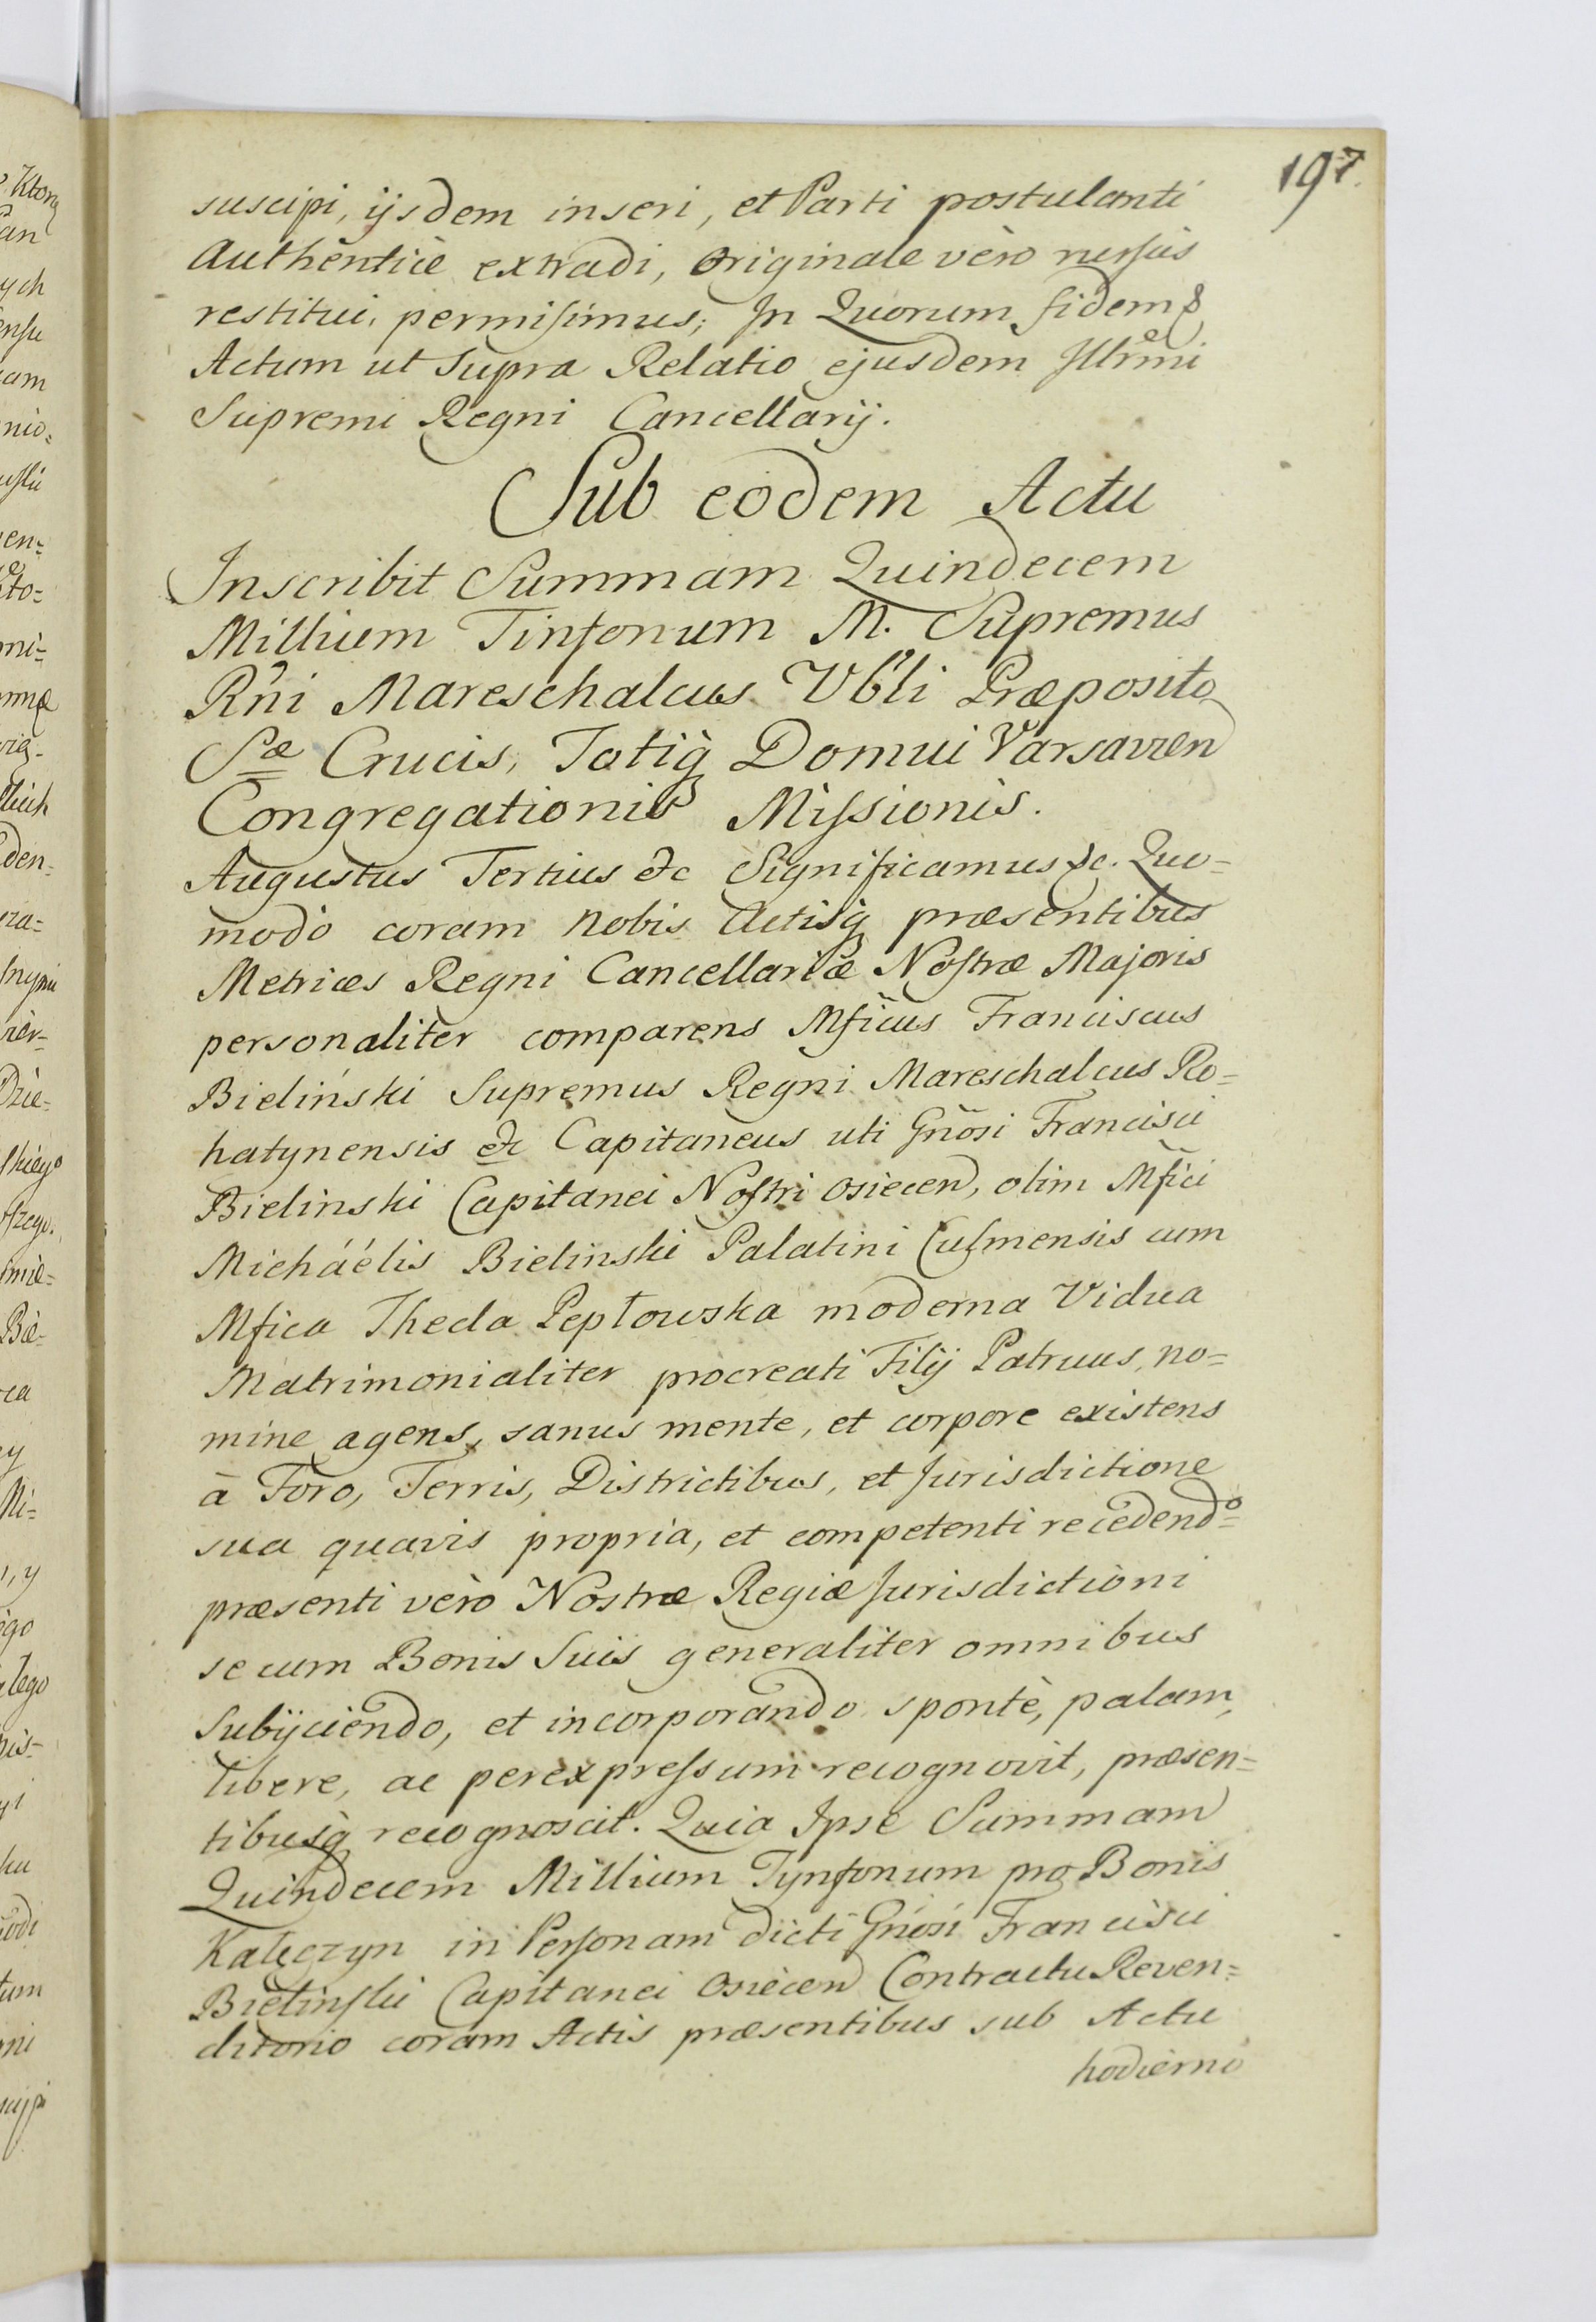 197.
suscipi, ijsdem inseri, et Parti postulanti
Authenticè extradi, originale vèro rursùs
restitui, permisimus; In Quorum fidem &
Actum ut supra Relatio ejusdem Illrmi
Supremi Regni Cancellarij.
Sub eodem Actu
Inscribit Summam Quindecem
Millium Tinfonum M. Supremus
Rni Mareschalcus Vbli Præposito
Sæ Crucis, Totiq Domui Varsavien
Congregationis Missionis.
Augustus Tertius &c Significamus &c. Quo=
modò coram Nobis Actisq præsentibus
Metrices Regni Cancellariæ Nostræ Majoris
personaliter comparens Mficus Franciscus
Bieliński Supremus Regni Mareschalcus Ro=
hatynensis &c Capitaneus uti Gnosi Francisci
Bielinski Capitanei Nostri Osiecen, olim Mfici
Micháélis Bielinski Palatini Culmensis cum
Mfica Thecla Pepłowska moderna Vidua
Matrimonialiter procreati Filij Patruus, no=
mine agens, sanus mente, et corpore existens
à Foro, Terris, Districtibus, et Jurisdictione
sua quavis propria, et competenti recedendo=
præsenti vèro Nostræ Regiæ Jurisdictioni
se cum Bonis Suis generaliter omnibus
Subijciendo, et incorporando spontè, palam,
libere, ac perexpressum recognovit, præsen=
tibusq recognoscit. Quia Ipse Summam
Quindecem Millium Tynfonum pro Bonis
Kałęczyn in Personam dicti Gnosi Francisci
Bielinski Capitanei Osiecen Contractu Reven=
ditorio coram Actis præsentibus sub Actu
hodierno